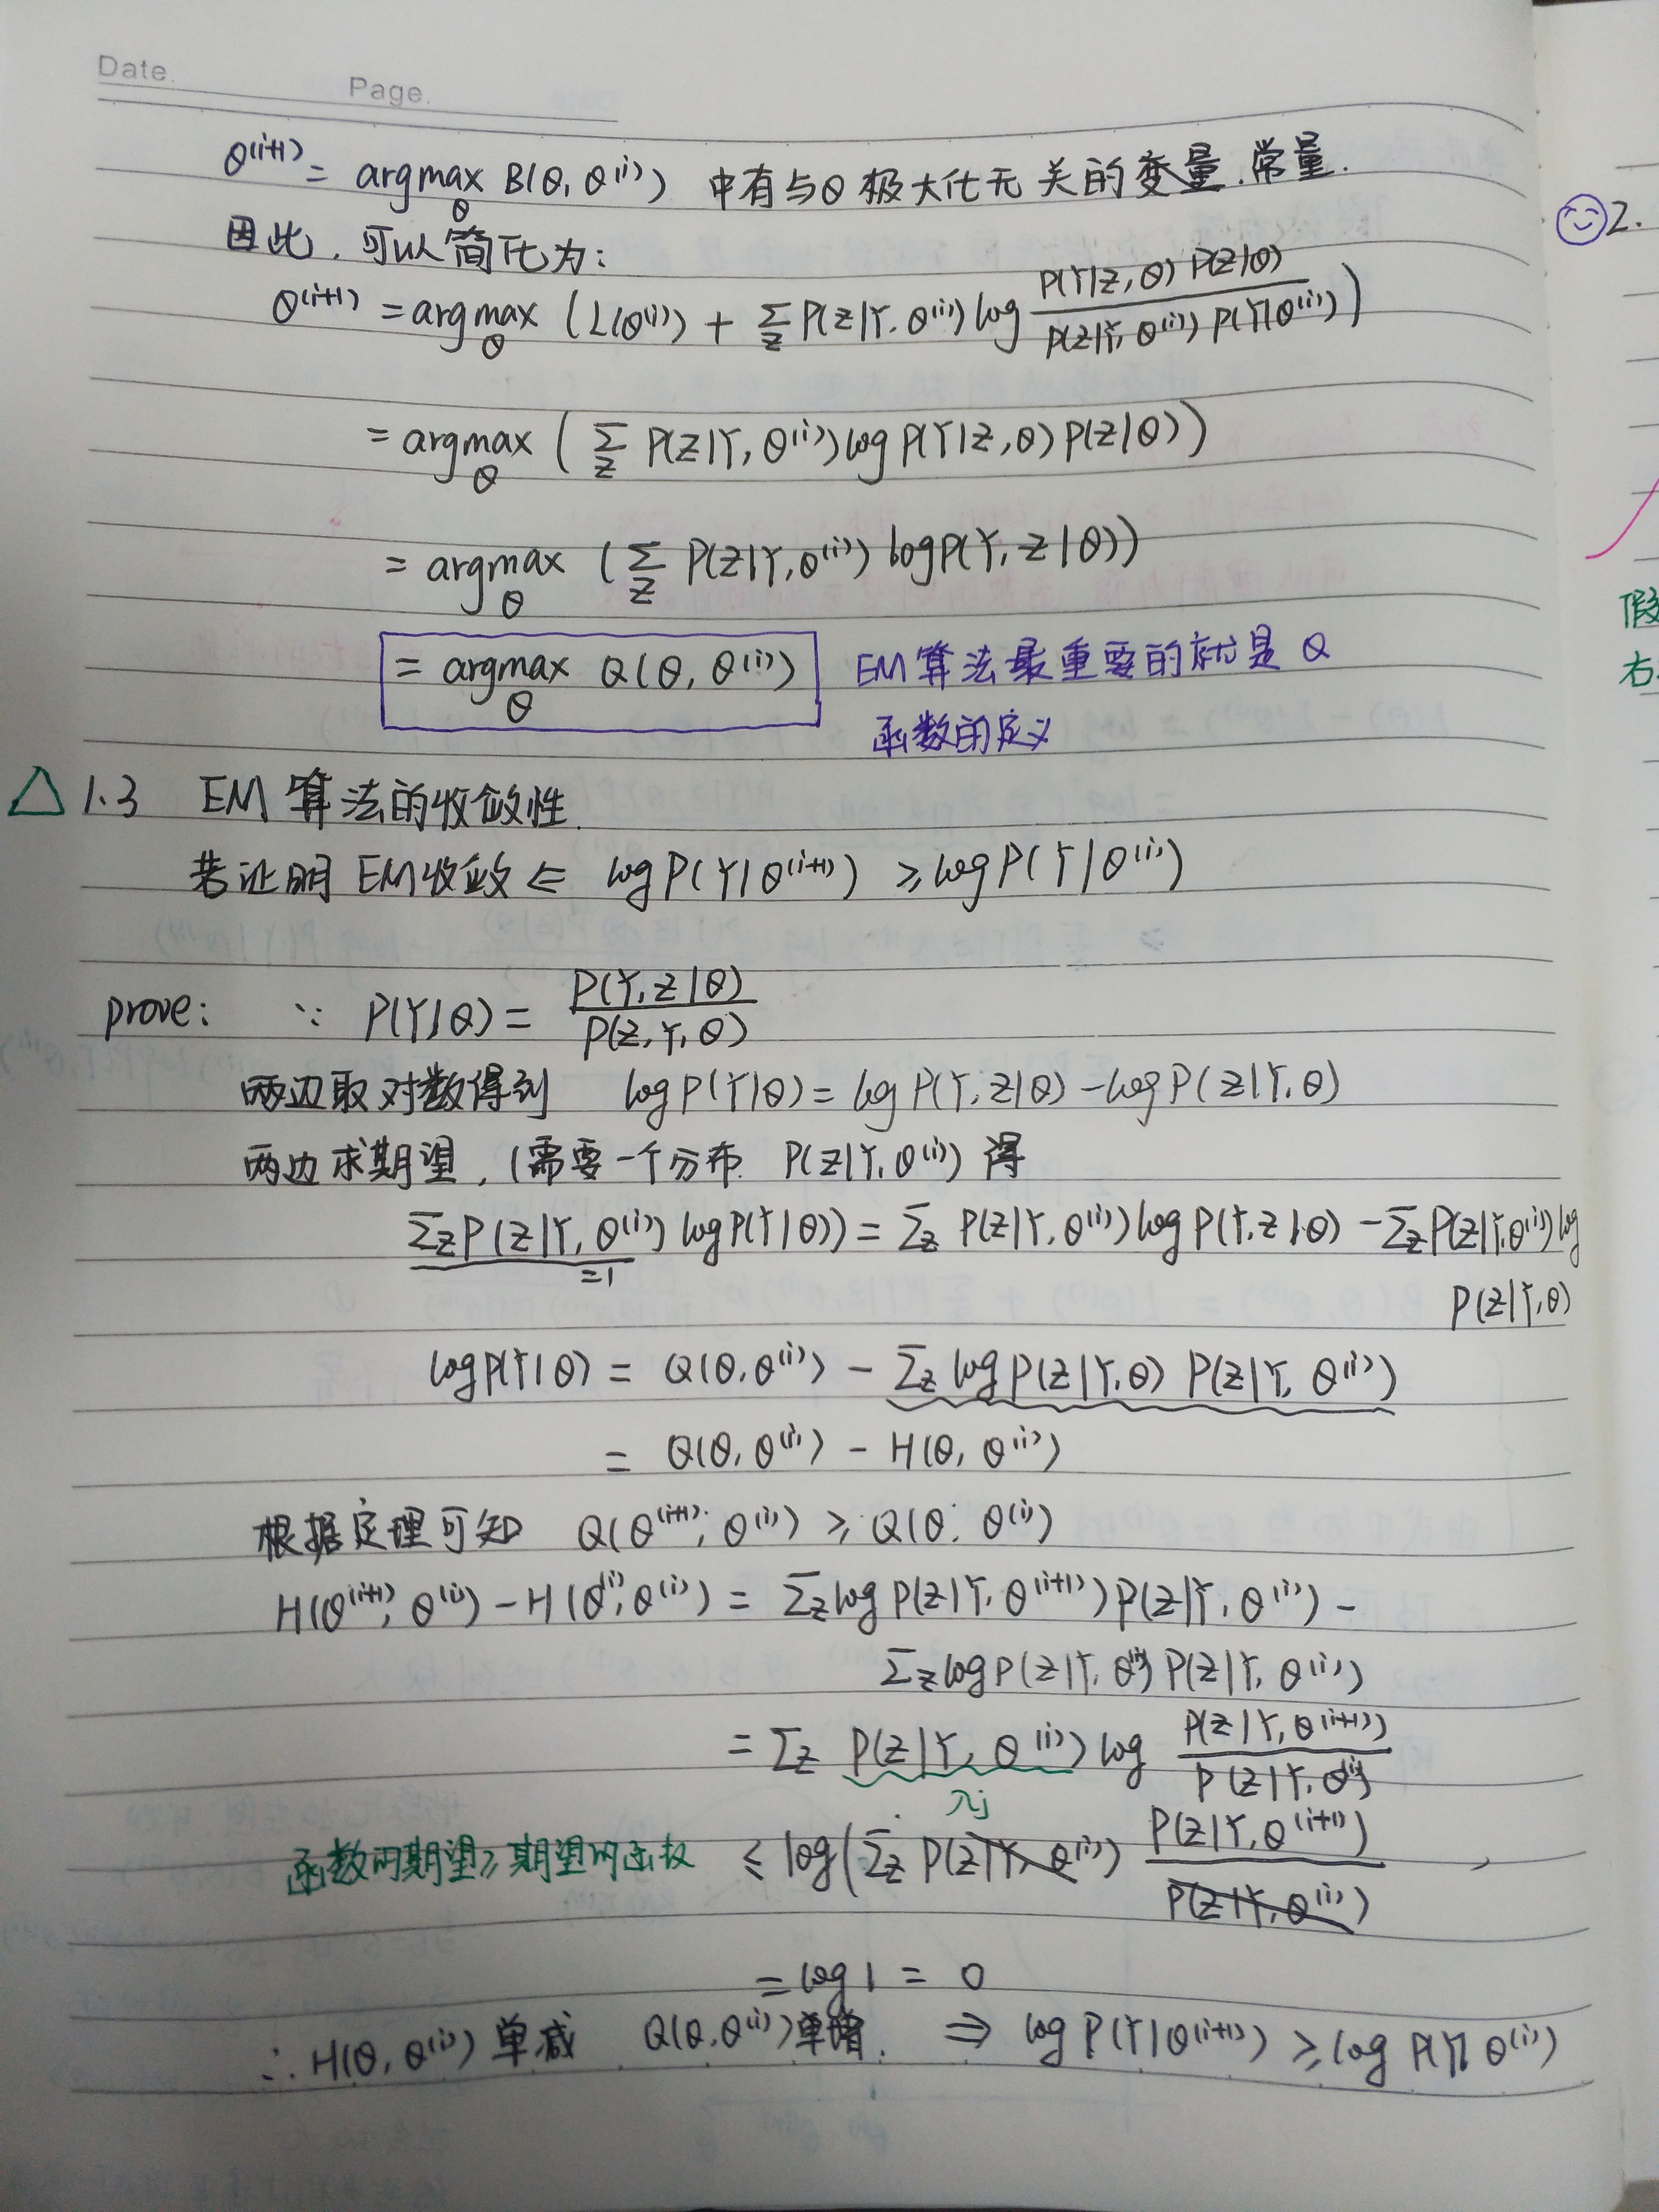 Date.
Page.
θ^(i+1) = argmax_θ B(θ, θ^(i)) 中有与θ极大化无关的变量.常量.
因此, 可以简化为:
θ^(i+1) = argmax_θ (L(θ^(i)) + Σ_Z P(Z|Y, θ^(i)) log P(Y|Z, θ) P(Z|θ) / P(Z|Y, θ^(i)) P(Y|θ^(i)))
= argmax_θ (Σ_Z P(Z|Y, θ^(i)) log P(Y|Z, θ) P(Z|θ))
= argmax_θ (Σ_Z P(Z|Y, θ^(i)) log P(Y, Z|θ))
= argmax_θ Q(θ, θ^(i)) EM算法最重要的就是Q
函数的定义
△ 1.3 EM算法的收敛性.
若证明EM收敛 ⇐ log P(Y|θ^(i+1)) ≥ log P(Y|θ^(i))
prove: ∵ P(Y|θ) = P(Y, Z|θ) / P(Z, Y, θ)
两边取对数得到 log P(Y|θ) = log P(Y, Z|θ) - log P(Z|Y, θ)
两边求期望, (需要一个分布 P(Z|Y, θ^(i)) 得
Σ_Z P(Z|Y, θ^(i)) log P(Y|θ)) = Σ_Z P(Z|Y, θ^(i)) log P(Y, Z|θ) - Σ_Z P(Z|Y, θ^(i)) log
=1
P(Z|Y, θ)
log P(Y|θ) = Q(θ, θ^(i)) - Σ_Z log P(Z|Y, θ) P(Z|Y, θ^(i))
= Q(θ, θ^(i)) - H(θ, θ^(i))
根据定理可知 Q(θ^(i+1), θ^(i)) ≥ Q(θ, θ^(i))
H(θ^(i+1), θ^(i)) - H(θ^(i), θ^(i)) = Σ_Z log P(Z|Y, θ^(i+1)) P(Z|Y, θ^(i)) -
Σ_Z log P(Z|Y, θ^(i)) P(Z|Y, θ^(i))
= Σ_Z P(Z|Y, θ^(i)) log P(Z|Y, θ^(i+1)) / P(Z|Y, θ^(i))
λj
函数的期望≥期望的函数 ≤ log(Σ_Z P(Z|Y, θ^(i)) P(Z|Y, θ^(i+1)) / P(Z|Y, θ^(i))
= log 1 = 0
∴ H(θ, θ^(i)) 单减 Q(θ, θ^(i)) 单增. ⇒ log P(Y|θ^(i+1)) ≥ log P(Y|θ^(i))
2.
假
右